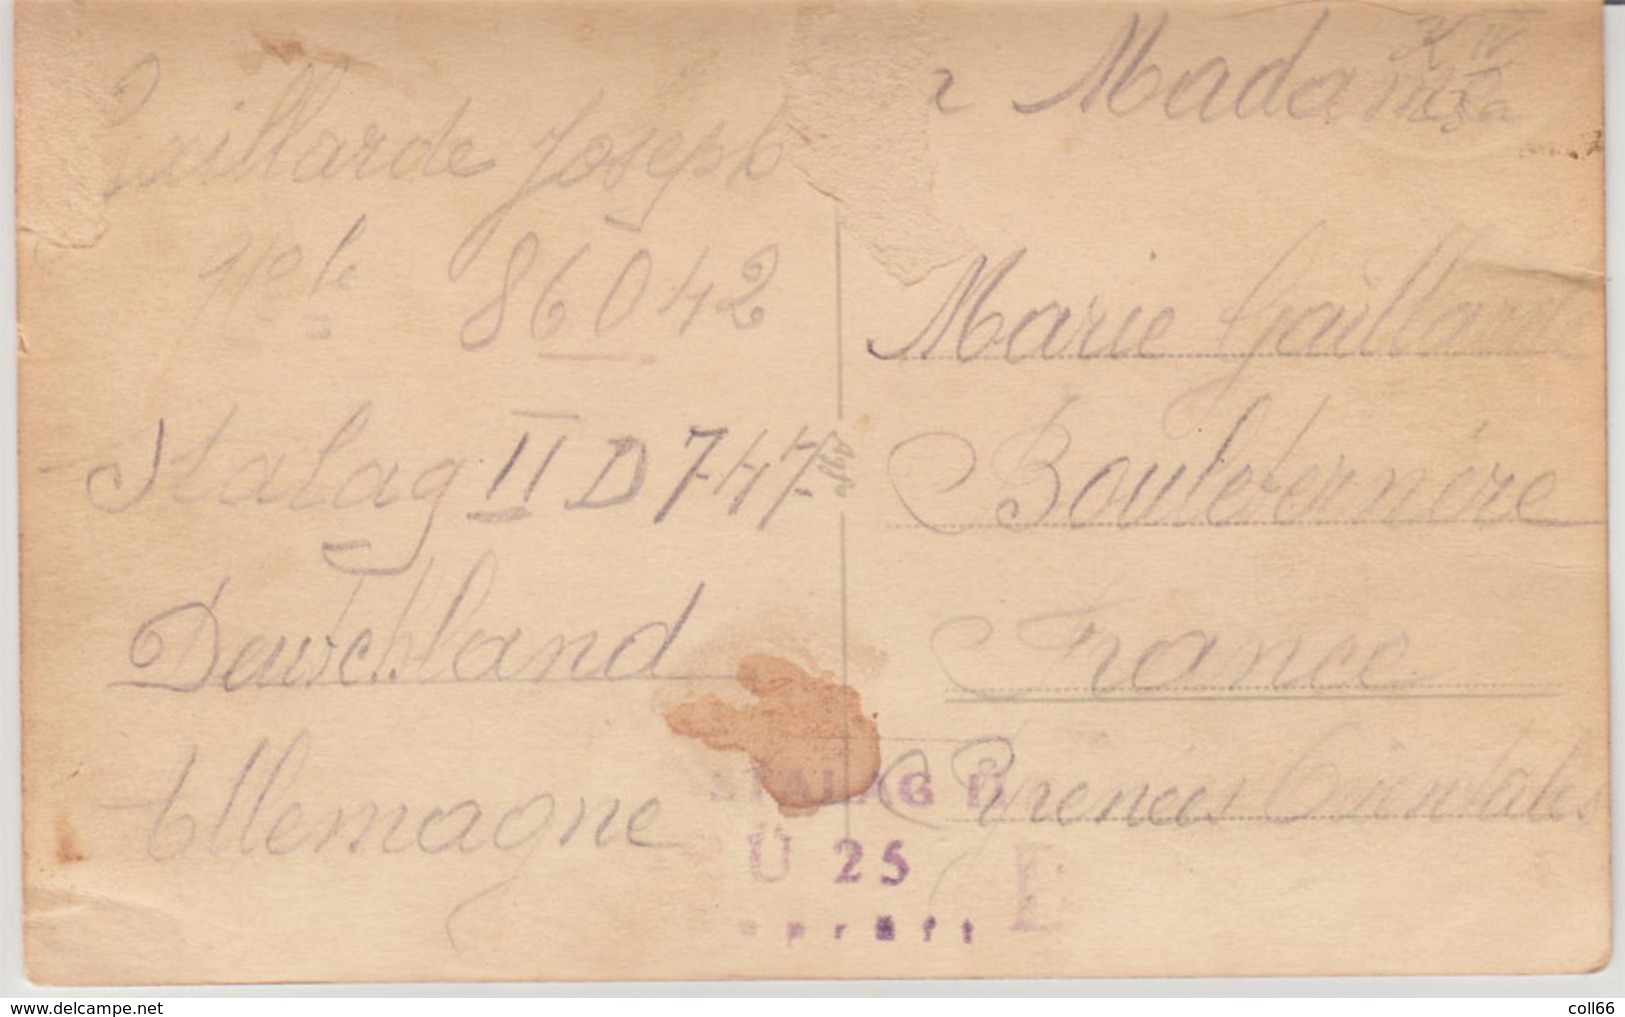 Gaillarde Joseph
Nº le 86042
Stalag II D 747
Dautchland
Allemagne
Madame
Marie Gaillarde
Bouleternére
France
Pyrenées Orientales
STALAG II
Ü 25
E
prüft
delcampe.net
coll66